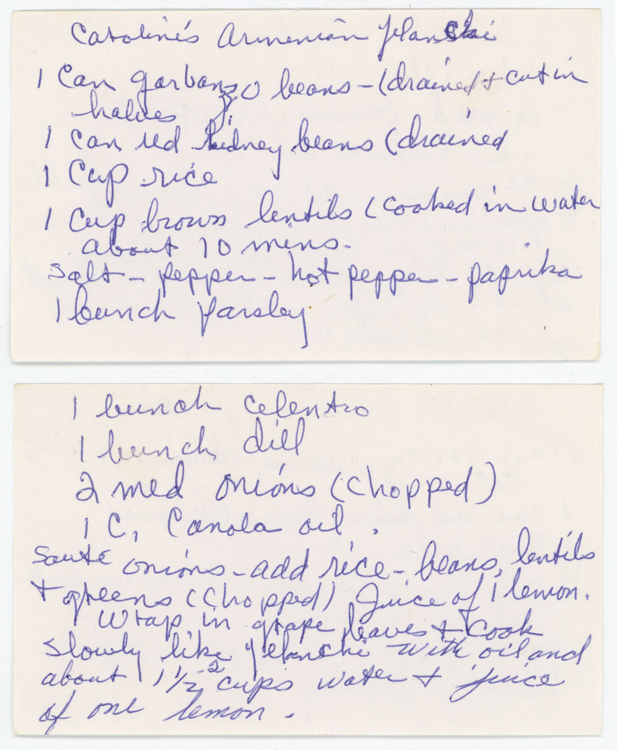 Caroline's Armenian Yalanchi
1 Can garbanzo beans - (drained + cut in
halves
1 can red kidney beans (drained
1 Cup rice
1 Cup brown lentils (cooked in water
about 10 mins.
Salt - pepper - hot pepper - paprika
1 bunch parsley
1 bunch celentro
1 bunch dill
2 med onions (chopped)
1 C. Canola oil.
Sauté onions - add rice - beans, lentils
+ greens (chopped) Juice of 1 lemon.
Wrap in grape leaves + cook
slowly like yelanche with oil and
about 1 1/2 - 2 cups water + juice
of one lemon.